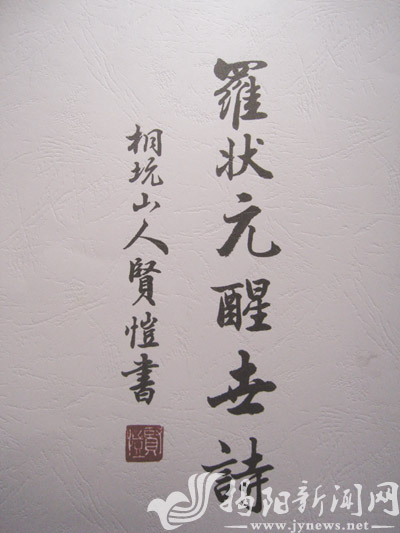 羅状元醒世詩
桐坑山人賢愷書
賢愷
揭阳新闻网
www.jynews.net